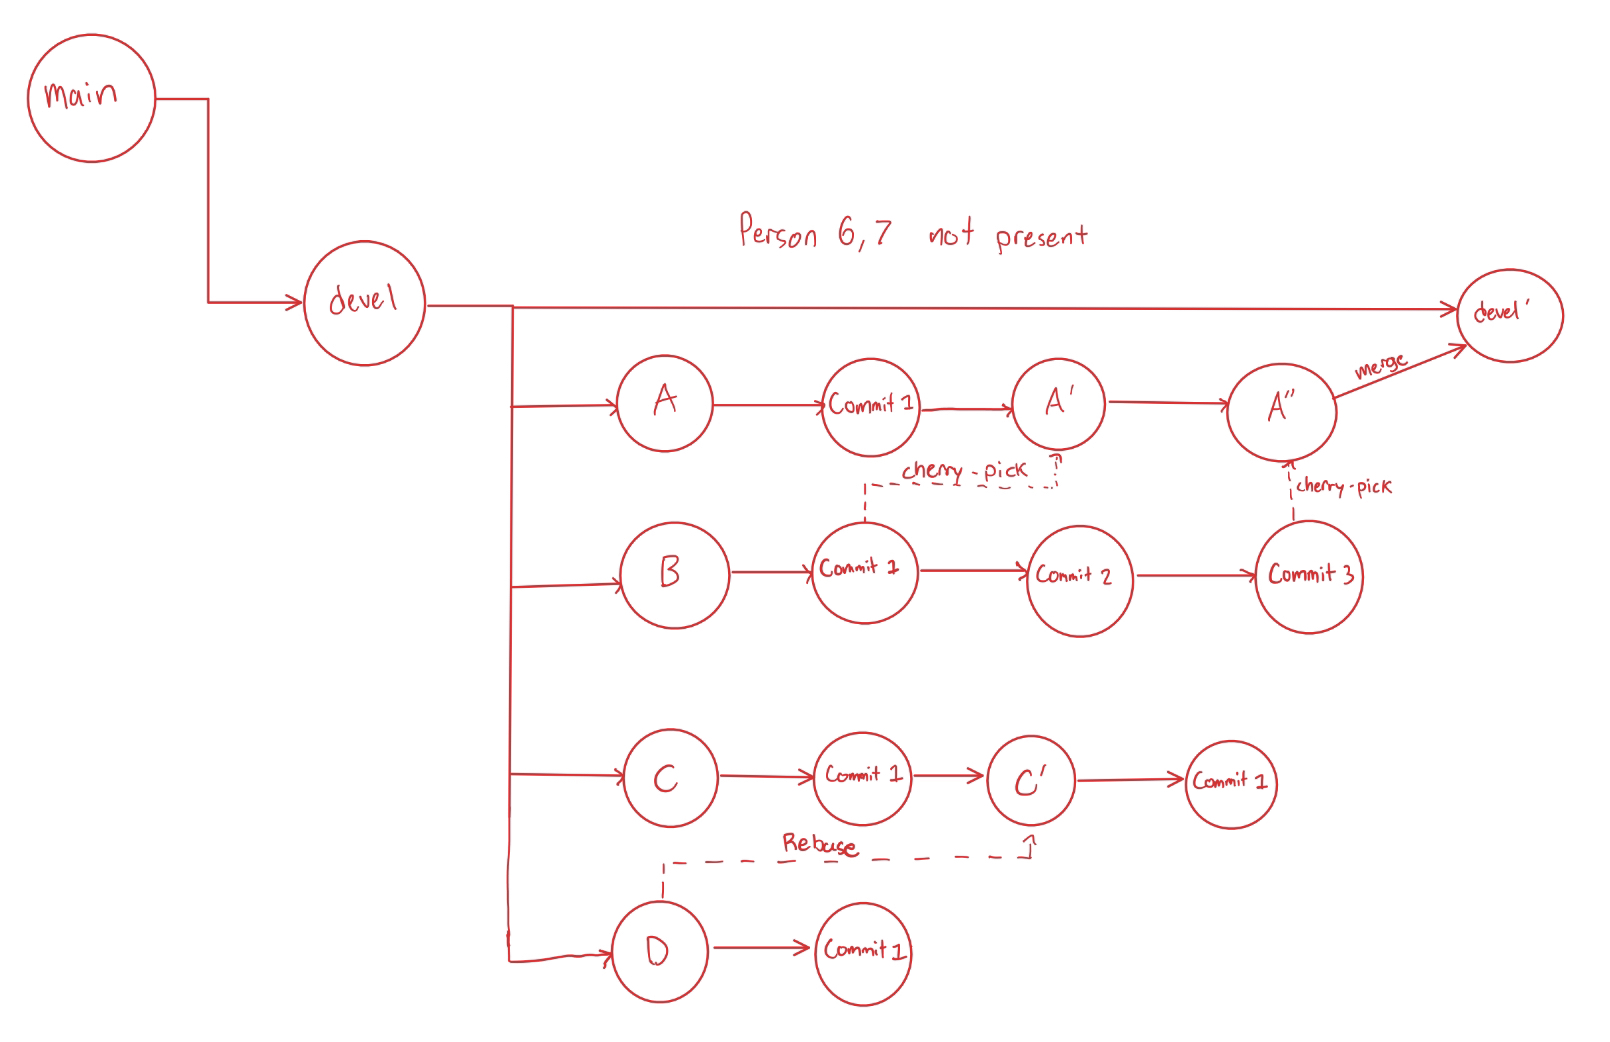 main
Person 6,7 not present
devel
devel'
merge
A
Commit 1
A'
A"
cherry-pick
cherry-pick
B
Commit 1
Commit 2
Commit 3
C
Commit 1
C'
Commit 1
Rebase
D
Commit 1